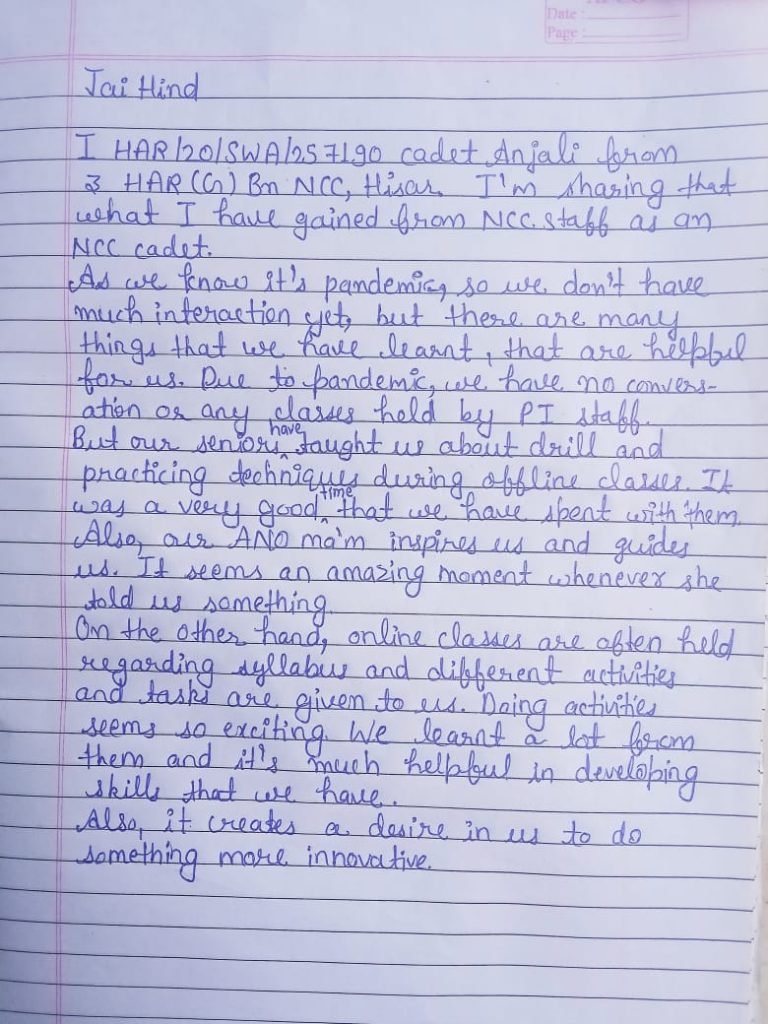 Date :
Page :
Jai Hind
I HAR/20/SWA/257190 cadet Anjali from
3 HAR (G) Bn NCC, Hisar. I'm sharing that
what I have gained from NCC staff as an
NCC cadet.
As we know it's pandemic, so we don't have
much interaction yet, but there are many
things that we have learnt, that are helpful
for us. Due to pandemic, we have no convers-
ation or any classes held by PI staff.
But our seniors have taught us about drill and
practicing techniques during offline classes. It
was a very good time that we have spent with them.
Also, our ANO ma'm inspires us and guides
us. It seems an amazing moment whenever she
told us something.
On the other hand, online classes are often held
regarding syllabus and different activities
and tasks are given to us. Doing activities
seems so exciting. We learnt a lot from
them and it's much helpful in developing
skills that we have.
Also, it creates a desire in us to do
something more innovative.